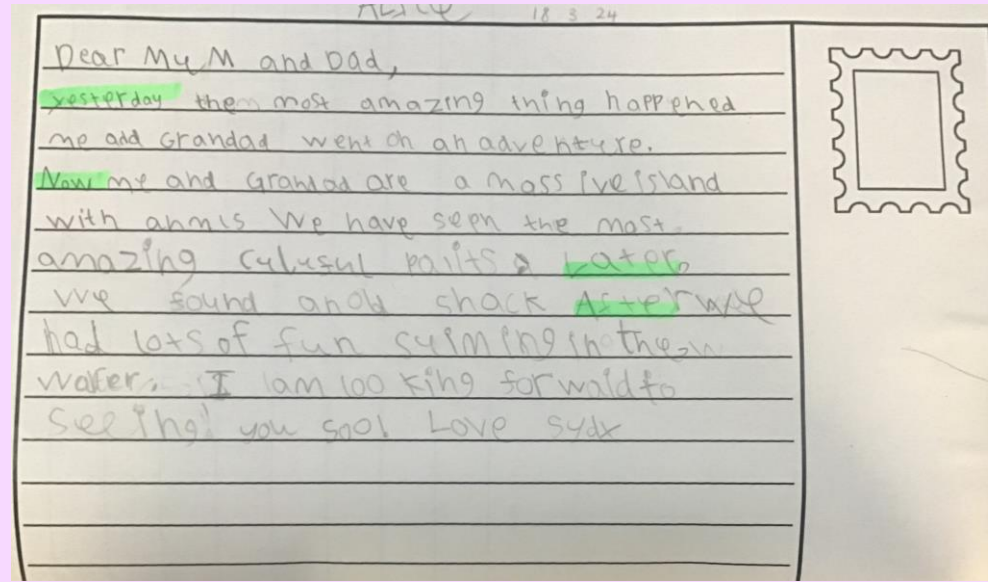 ALICE 18 3 24
Dear MuM and Dad,
yesterday them most amazing thing happened
me and Grandad went on an adventure.
Now me and Grandad are a massive island
with anmis We have seen the most
amazing culuful parits Later
We found anold shack After we
had lots of fun swiming in the
water. I am looking forwald to
seeing! you soo! Love sydx